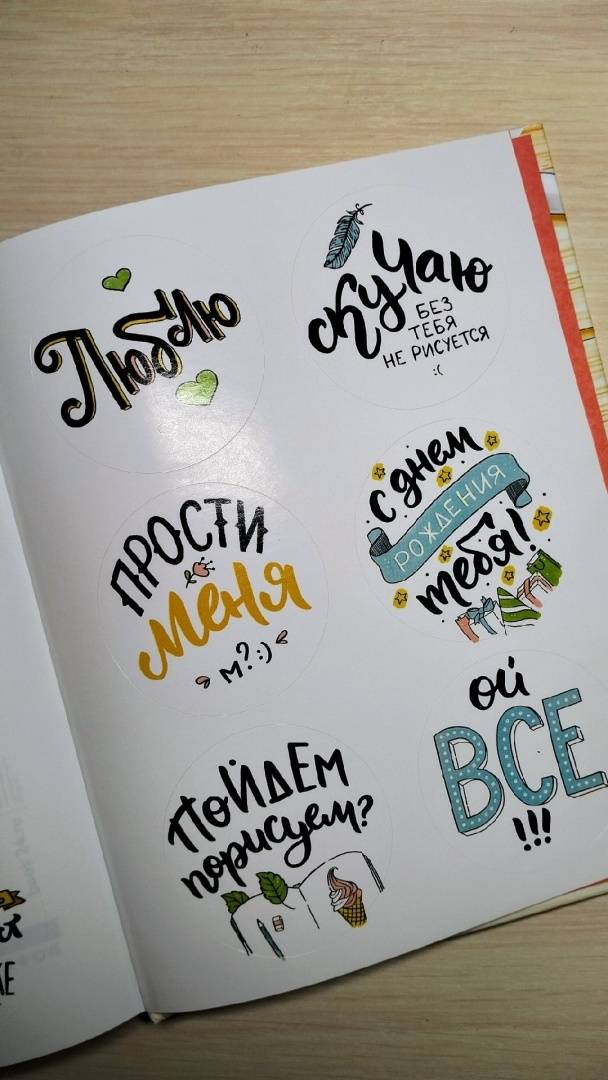 Люблю
скучаю
БЕЗ
ТЕБЯ
НЕ РИСУЕТСЯ
:(
ПРОСТИ
меня
м?:)
с днем
РОЖДЕНИЯ
тебя!
ПОЙДЕМ
порисуем?
ой
ВСЕ
!!!